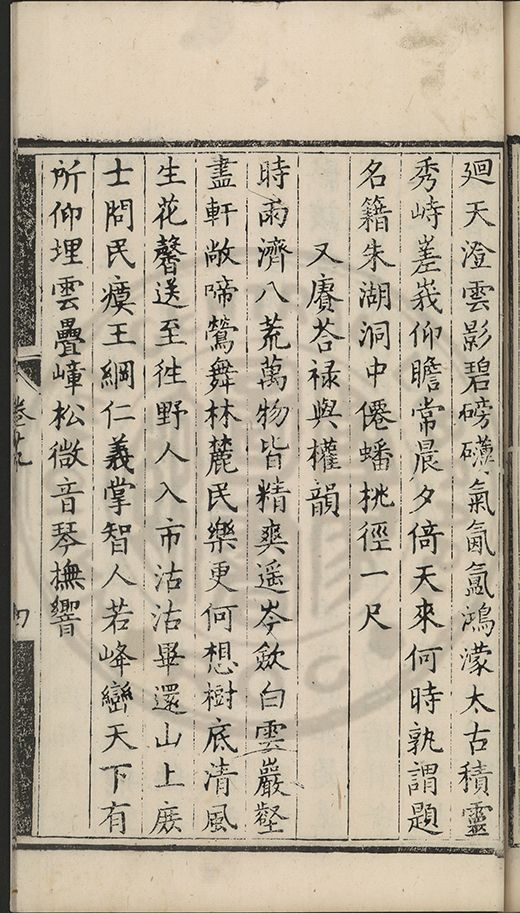 廻天澄雲影碧磅礴氣氤氳鴻濛太古積靈
秀峙嵳峩仰瞻常晨夕倚天來何時孰謂題
名籍朱湖洞中僊蟠桃徑一尺
又賡荅禄與權韻
時雨濟八荒萬物皆精爽遥岑歛白雲巖壑
盡軒敞啼鶯舞林麓民樂更何想樹底清風
生花馨送至徃野人入市沽沽畢還山上展
士問民瘼王綱仁義掌智人若峰巒天下有
所仰埋雲疊嶂松微音琴撫響
卷十九